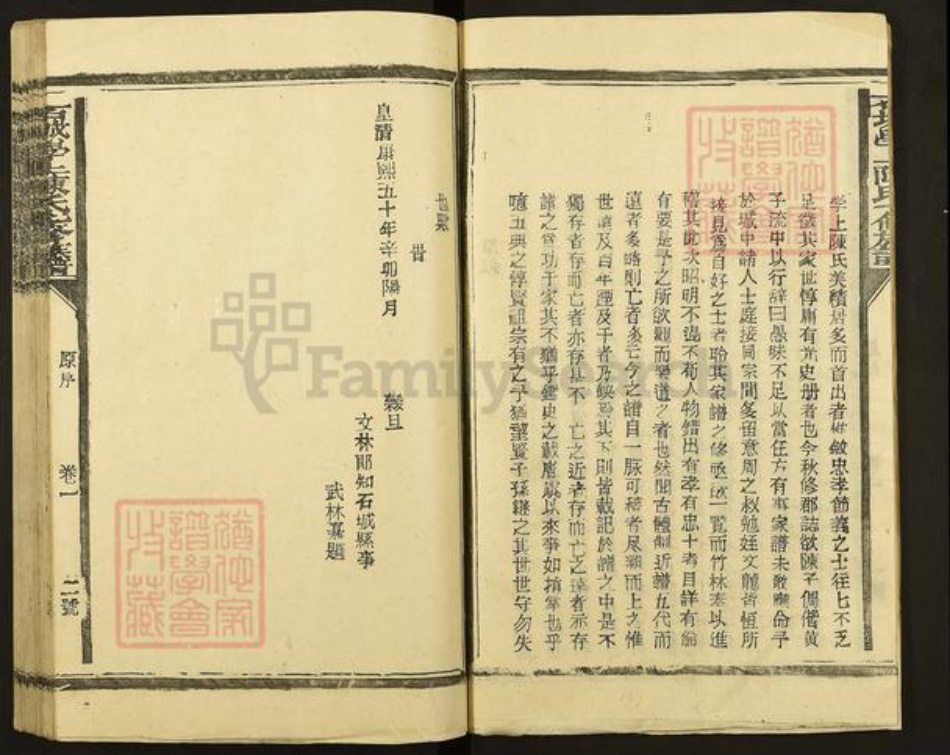 學上陳氏美積居多而首出者惟敏忠孝節義之士往七不乏
足徵其家世惇庸有光史册者也今秋修郡誌欲陳子偶偕黃
子流中以行辞曰愚昧不足以當任方有事家譜未敢應命予
於城中諸人士庭接同宗間多留意周之叔勉姪文體皆恒所
接見爲自好之士者聆其家譜之修亟欲一覧而竹林袤以進
稽其此次昭明不混不荀人物錯出有孝有忠十者目詳有
有要是予之所欲聞而樂道之者也然聞古體制近譜五代而
遠者多略則亡者多云今之譜自一脈可稽者尽溯而上之惟
世遠及百年湮及千者乃缺焉其下則皆載記於譜之中是不
獨存者存而亡者亦存甚不亡之近者存而亡之遠者亦存
諸之爲功于家其不猶乎鑑史之載唐虞以來事如指掌也乎
噫五典之惇賢祖宗有之予猶望賢子孫繼之其世世守勿失
世親
旹
皇清康熙五十年辛卯陽月
穀旦
文林郎知石城縣事
武林
題
原序
卷一
二號
石城學上陳氏修族譜
猶他家譜學會收藏
猶他家譜學會收藏
FamilySearch